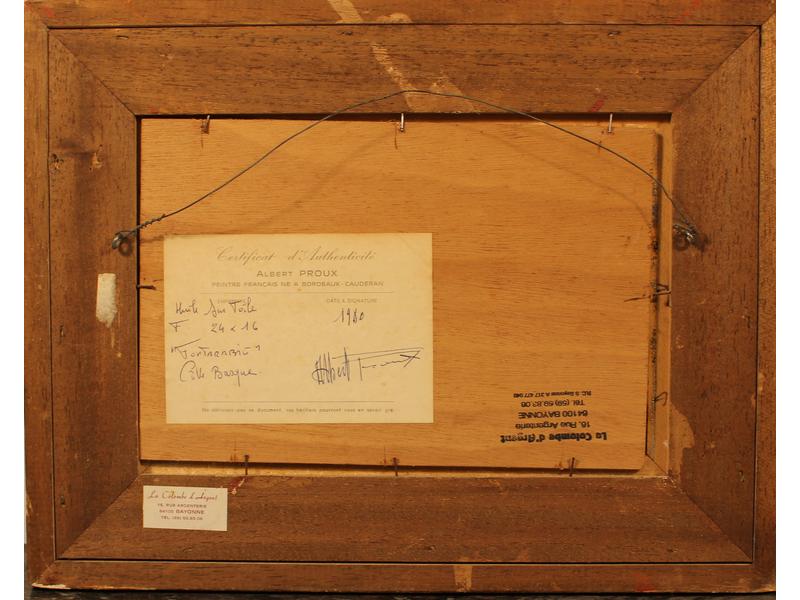 Certificat d'Authenticité
ALBERT PROUX
PEINTRE FRANÇAIS NÉ A BORDEAUX-CAUDÉRAN
DATE & SIGNATURE
Huile sur Toile
F 24 x 16
1980
"Fontarabie"
Côte Basque
Albert Proux
Ne détruisez pas ce document, vos héritiers pourront vous en savoir gré.
La Colombe d'Argent
16, Rue Argenterie
64100 BAYONNE
Tél. (59) 59.83.08
R.C.S. Bayonne A 317 477 040
La Colombe d'Argent
16, RUE ARGENTERIE
64100 BAYONNE
TEL. (59) 59.83.08